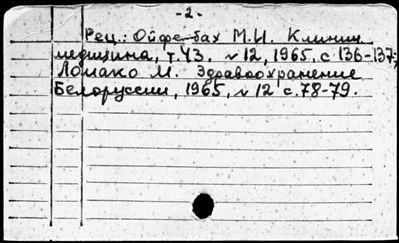 -2-
Рец.: Ойфе-бах М.И. Клинич.
медицина, т.43. №12, 1965, с 136-137;
Ломако М. Здравоохранение
Белоруссии, 1965, №12 с.78-79.